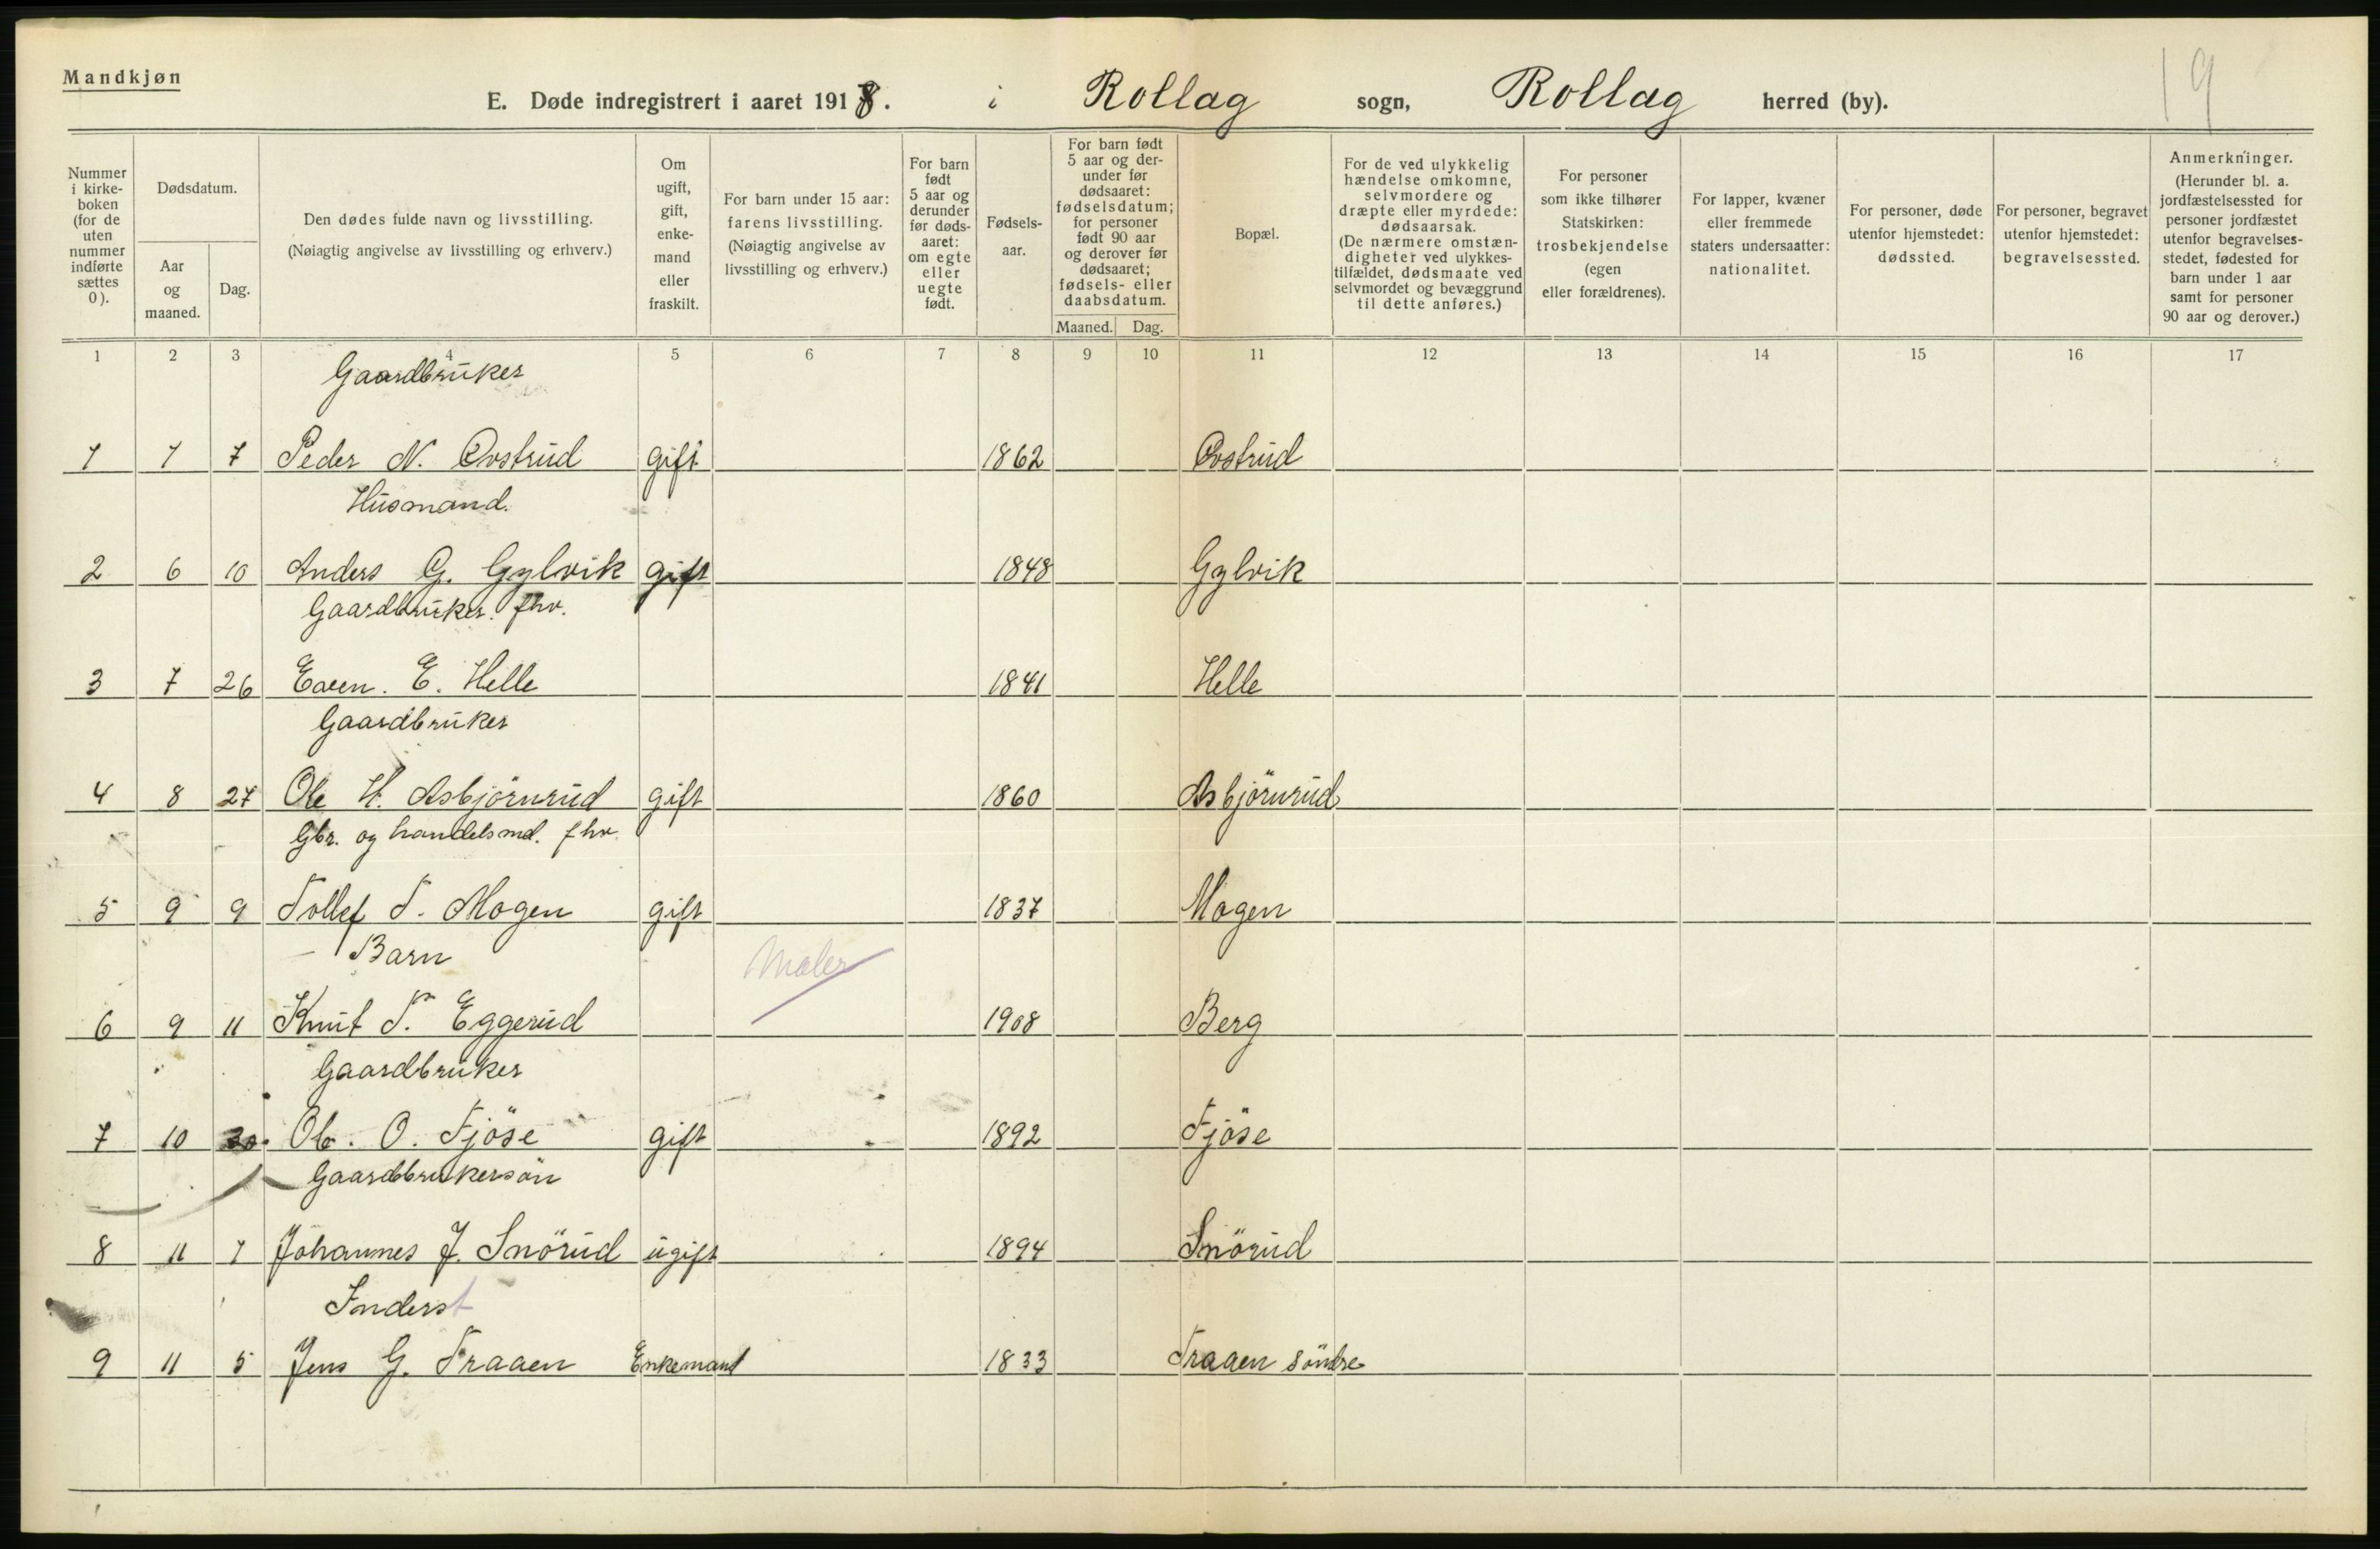 Mandkjøn
E. Døde indregistrert i aaret 1918. i Rollag sogn, Rollag herred (by).
19
Nummer i kirke-boken (for de uten nummer indførte sættes 0).
Dødsdatum.
Aar og maaned.
Dag.
Den dødes fulde navn og livsstilling.
(Nøiagtig angivelse av livsstilling og erhverv.)
Om ugift, gift, enke-mand eller fraskilt.
For barn under 15 aar: farens livsstilling.
(Nøiagtig angivelse av livsstilling og erhverv.)
For barn født 5 aar og derunder før døds-aaret: om egte eller uegte født.
Fødsels-aar.
For barn født 5 aar og der-under før dødsaaret: fødselsdatum; for personer født 90 aar og derover før dødsaaret; fødsels- eller daabsdatum.
Maaned. Dag.
Bopæl.
For de ved ulykkelig hændelse omkomne, selvmordere og dræpte eller myrdede: dødsaarsak.
(De nærmere omstæn-digheter ved ulykkes-tilfældet, dødsmaate ved selvmordet og bevæggrund til dette anføres.)
For personer som ikke tilhører Statskirken: trosbekjendelse (egen eller forældrenes).
For lapper, kvæner eller fremmede staters undersaatter: nationalitet.
For personer, døde utenfor hjemstedet: dødssted.
For personer, begravet utenfor hjemstedet: begravelsessted.
Anmerkninger.
(Herunder bl. a. jordfæstelsessted for personer jordfæstet utenfor begravelses-stedet, fødested for barn under 1 aar samt for personer 90 aar og derover.)
1 2 3 4 5 6 7 8 9 10 11 12 13 14 15 16 17
Gaardbruker
1 1 7 Peder N. Ovstrud gift 1862 Ovstrud
Husmand.
2 6 10 Anders G. Gylvik gift 1848 Gylvik
Gaardbruker. fhv.
3 7 26 Even. E. Helle 1841 Helle
Gaardbruker
4 8 27 Ole H. Asbjörnrud gift 1860 Asbjörnrud
Gbr. og handelsmd. fhv.
5 9 9 Tollef T. Mogen gift 1837 Mogen
Barn
Maler
6 9 11 Knut T. Eggerud 1908 Berg
Gaardbruker
7 10 20. Ole. O. Fjöse gift 1892 Fjöse
Gaardbrukersön
8 11 1 Johannes J. Snörud ugift 1894 Snörud
Inderst
9 11 5 Jens G. Traaen Enkemand 1833 Traaen söndre